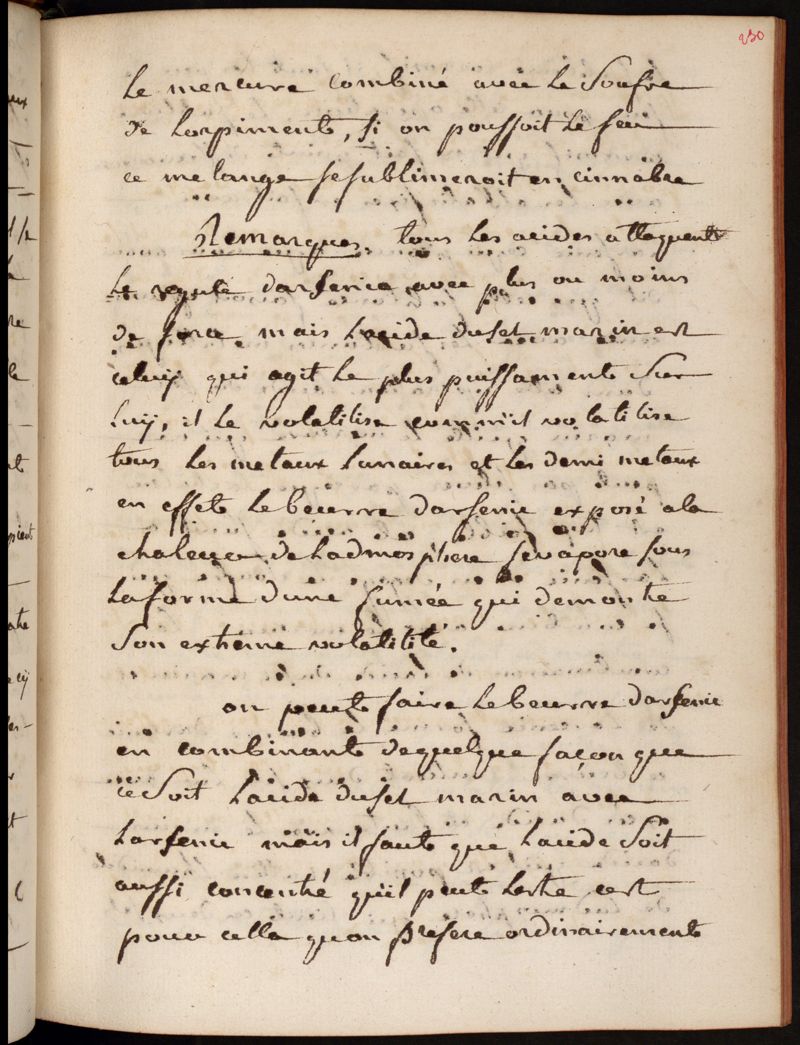 230
Le mercure combiné avec le Soufre
de Lorpimente, si on poussoit le feu
ce melange se sublimeroit en cinnabre
Remarques. tous les acides attaquent
le regule darsenic avec plus ou moins
de force mais lacide du sel marin est
celuy qui agit le plus puissamente Sur
luy, il le volatilise comm'il volatilise
tous les metaux lunaires et les demi metaux
en effete le beurre darsenic exposé a la
chaleur de Ladmosphere sevapore sous
la forme dune fumée qui demontre
Son extreme volatilité.
on peute faire le beurre darsenic
en combinante de quelque façon que
ce Soit lacide du sel marin avec
larsenic mais il faute que lacide Soit
aussi concentré quil peute lestre cest
pour cella quon prefere ordinairemente